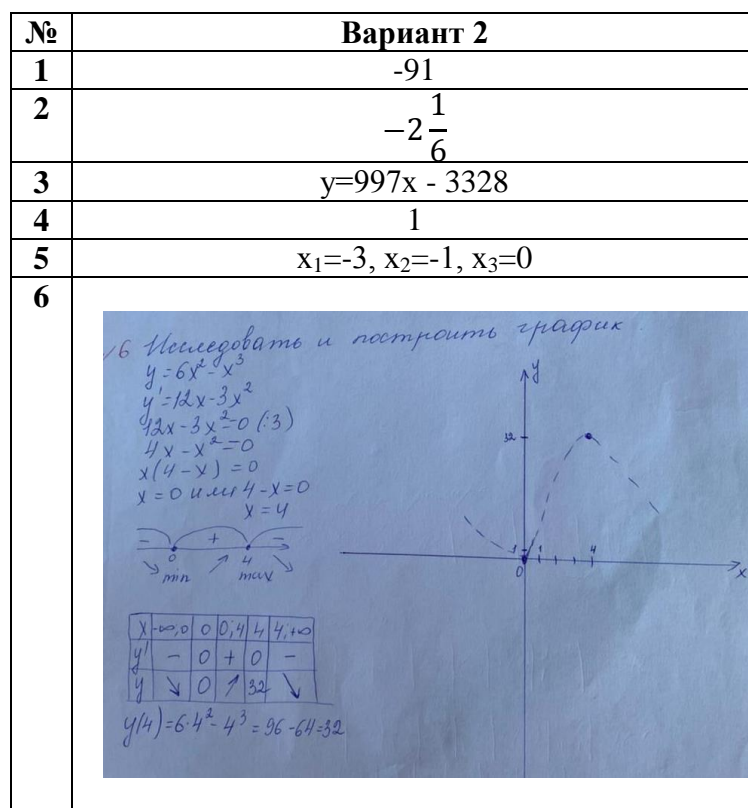 № Вариант 2
1 -91
2 −2 1/6
3 y=997x - 3328
4 1
5 x₁=-3, x₂=-1, x₃=0
6
6 Исследовать и построить график
y = 6x² - x³
y' = 12x - 3x²
12x - 3x² = 0 (:3)
4x - x² = 0
x(4 - x) = 0
x = 0 или 4 - x = 0
x = 4
- + -
0 4
min max
x -∞;0 0 0;4 4 4;+∞
y' - 0 + 0 -
y ↘ 0 ↗ 32 ↘
y(4) = 6·4² - 4³ = 96 - 64 = 32
y
32
1 1 4
0 x